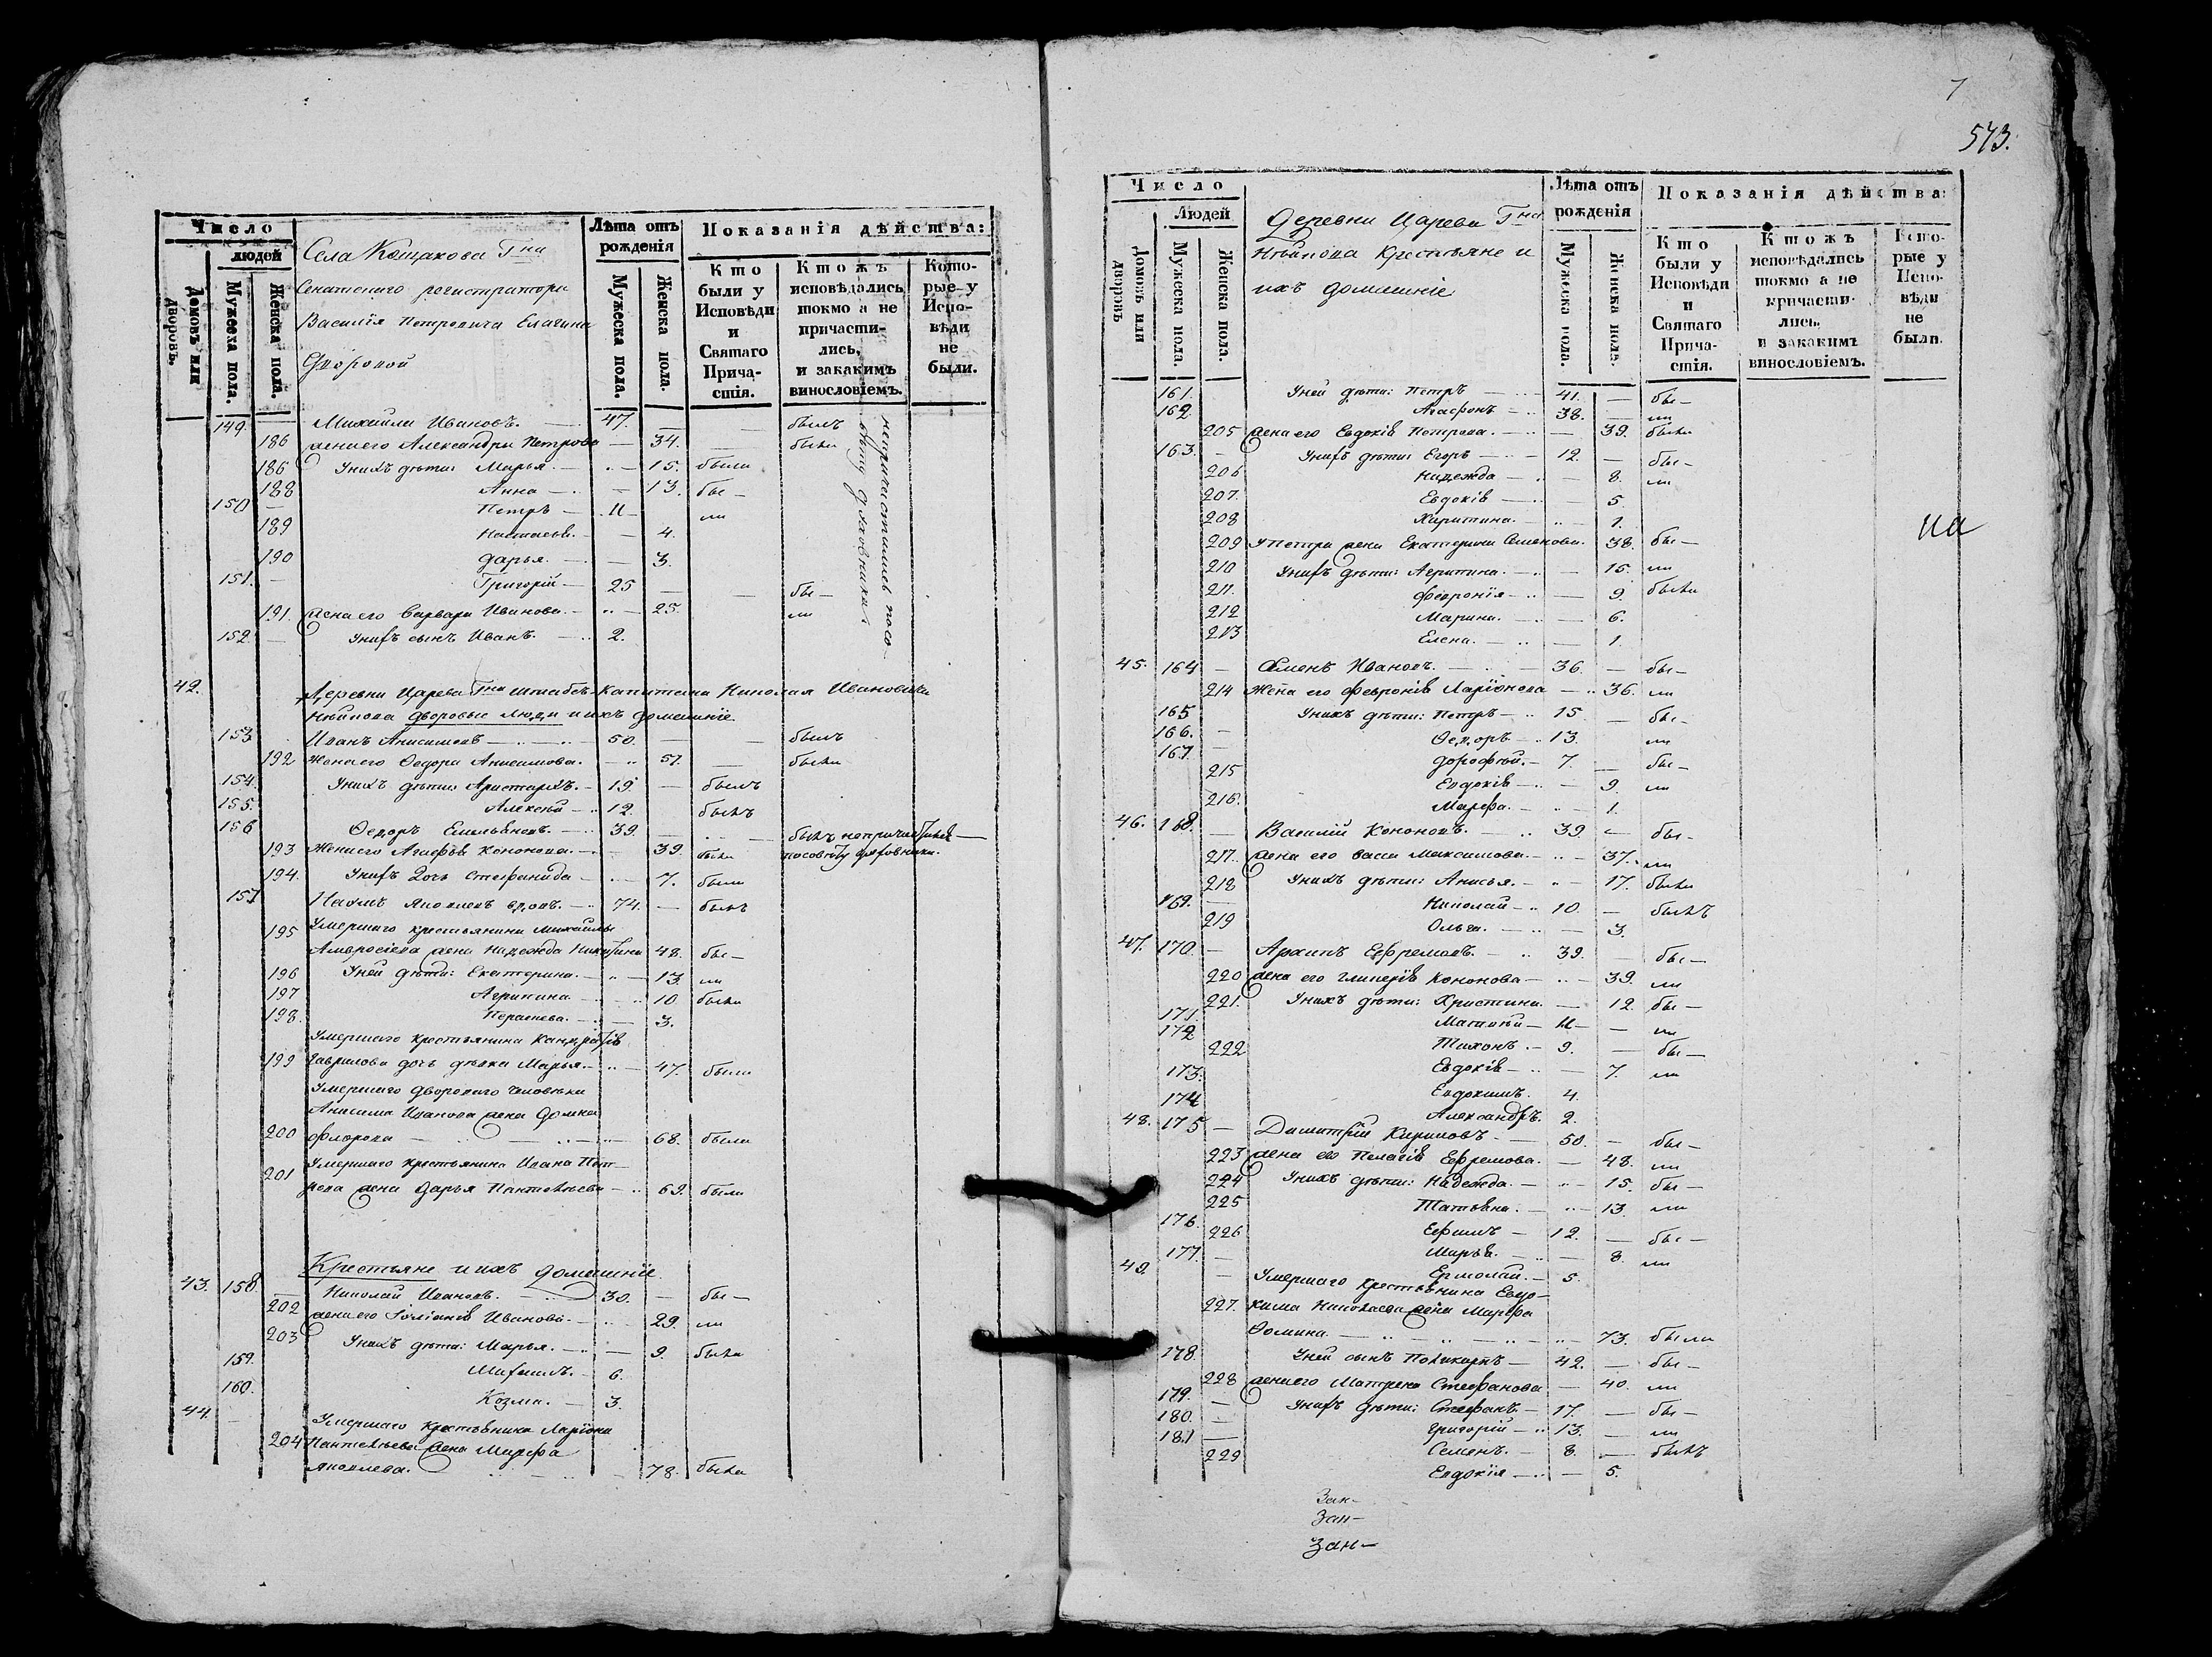 Число
людей
Домовъ или дворовъ.
Мужеска пола.
Женска пола.
Села Кощакова Гна
Сенатскаго регистратора
Василія Петровича Елагина
Дворовой
Лѣта отъ рожденія
Мужеска пола.
Женска пола.
Показанія дѣйства:
Кто были у Исповѣди и Святаго Прича-стія.
Ктожъ исповѣдались токмо а не причасти-лись, и закакимъ винословіемъ.
Кото-рые у Испо-вѣди не были.
149 Михайла Ивановъ. 47. былъ
186 жена его Александра Петрова 34. была
186 Унихъ дѣти: Марья. 15. была
188 Анна 13. бы-
150 Петръ 11 ли
189 Настасья. 4.
190 Дарья. 3.
151. Григорій 25 бы-
191. жена его Варвара Иванова. 25. ли
152. Унихъ сынъ Иванъ. 2.
непричастились посо-
вѣту духовника
42. Деревни Царева Гна штабсъ-капитана Николая Ивановича
Нѣйлова дворовые люди и ихъ домашніе
153 Иванъ Анисимовъ 50. былъ
192 Жена его Ѳедора Анисимова. 57. была
154. Унихъ дѣти: Аристархъ. 19. былъ
155. Алексѣй 12. былъ
156 Ѳедоръ Емельяновъ. 39. былъ непричастился
193 Жена его Агафья Кононова. 39. была посовѣту духовника.
194. Унихъ дочь Стефанида 7. была
157 Наумъ Яковлевъ вдовъ. 74. былъ
Умершаго крестьянина Михайлы
195 Амвросіева жена Надежда Никитина 48. бы-
196 Уней дѣти: Екатерина. 13. ли
197 Агрипина 10 была
198. 3.
Умершаго крестьянина
199 Гаврилова дочь дѣвка Марья. 47. была
Умершаго двороваго человѣка
Анисима Иванова жена Домна
200 Флорова 68. была
Умершаго крестьянина Ивана Пет-
201 рова жена Дарья Пантелѣева 69. была
Крестьяне и ихъ домашніе
43. 158. Николай Ивановъ. 30. бы-
202 жена его Іуліанія Иванова. 29. ли
203 Унихъ дѣти: Марья. 9. была
159. 6.
160. Козма. 3.
44. Умершаго крестьянина Ларіона
204 Пантелѣева жена Марфа
Яковлева. 78. была
7
573.
Число
Людей
Домовъ или дворовъ
Мужеска пола.
Женска пола.
Деревни Царева Гна
Нѣйлова Крестьяне и
ихъ домашніе
Лѣта отъ рожденія
Мужеска пола.
Женска пола.
Показанія дѣйства:
Кто были у Исповѣди и Святаго Прича-стія.
Ктожъ исповѣдались токмо а не причасти-лись, и закакимъ винословіемъ.
Кото-рые у Испо-вѣди не были.
161. Уней дѣти: Петръ 41. бы-
162 Агафонъ 38. ли
205 жена его Евдокія Петрова. 39. была
163. Унихъ дѣти: Егоръ 12. бы-
206 Надежда 8. ли
207. Евдокія 5.
208 Харитина. 1.
209 У Петра жена Екатерина Семенова. 38. бы-
210 Унихъ дѣти: Агрипина. 15. ли
211. Февронія 9. была
212 Марина. 6.
213 Елена. 1.
на
45. 164 Семенъ Ивановъ. 36. бы-
214 Жена его Февронія Ларіонова 36. ли
165 Унихъ дѣти: Петръ 15. бы-
166. Ѳедоръ 13. ли
167. Дорофѣй. 7. бы-
215 Евдокія 9. ли
216. Марфа. 1.
46. 168. Василій Кононовъ. 39. бы-
217. жена его Васса Максимова. 37. ли
218 Унихъ дѣти: Анисья. 17. была
169. Николай 10. былъ
219 Ольга. 3.
47. 170. Архипъ Ефремовъ. 39. бы-
220 жена его Гликерія Кононова 39. ли
221. Унихъ дѣти: Христина. 12. бы-
171. Матвѣй 11 ли
172 Тихонъ. 9. бы-
222 Евдокія 7. ли
173. Евдокимъ. 4.
174 Александръ. 2.
48. 175 Димитрій Кириловъ. 50. бы-
223 жена его Пелагія Ефремова. 48. ли
224 Унихъ дѣти: Надежда. 15. бы-
225 Татьяна. 13. ли
176. Ефимъ 12. бы-
226 Марья. 8. ли
177. Ермолай. 5.
49. Умершаго крестьянина Евдо-
227. кима Николаева жена Марфа
Ѳомина. 73. была
178. Уней сынъ Поликарпъ 42. бы-
228 жена его Матрена Стефанова 40. ли
179. Унихъ дѣти: Стефанъ. 17. бы-
180. Григорій 13. ли
181 Семенъ. 8. былъ
229 Евдокія 5.
Зан-
Зан-
Зан-